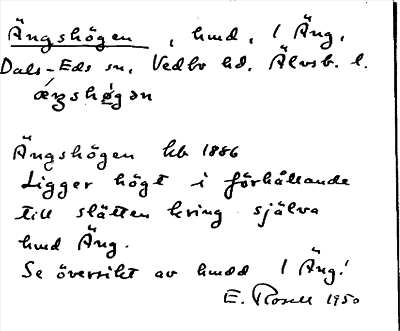 Ängshögen, hmd, 1 Äng,
Dals-Eds sn, Vedbo hd. Älvsb. l.
Ängshögen kb 1886
Ligger högt i förhållande
till slätten kring själva
hmd Äng.
Se översikt av hmdd 1 Äng!
E. Rosell 1950